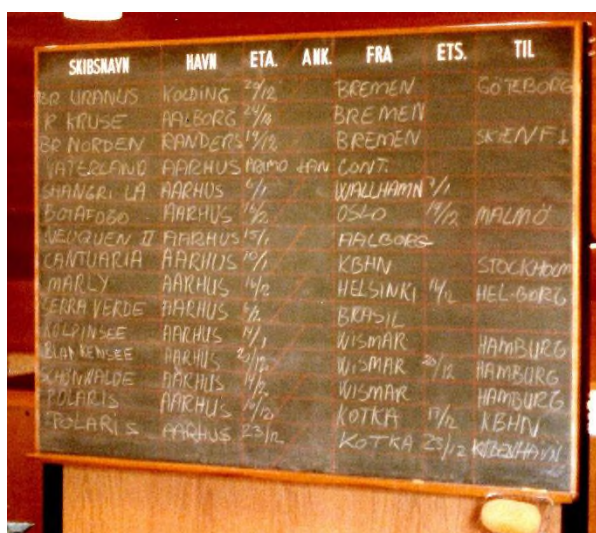 SKIBSNAVN HAVN ETA. ANK. FRA ETS. TIL
BR URANUS KOLDING 29/12 BREMEN GÖTEBORG
R KRUSE AALBORG BREMEN
BR NORDEN RANDERS 19/12 BREMEN
VATERLAND AARHUS PRIMO JAN CONT.
SHANGRI LA AARHUS 6/1 WALLHAMN
BOTAFOGO AARHUS OSLO 19/12 MALMÖ
NEUQUEN II AARHUS 15/1 AALBORG
CANTUARIA AARHUS 10/1 KBHN STOCKHOLM
MARLY AARHUS HELSINKI HEL-BORG
SERRA VERDE AARHUS BRASIL
KÖLPINSEE AARHUS WISMAR HAMBURG
BLANKENSEE AARHUS WISMAR 20/12 HAMBURG
SCHÖNWALDE AARHUS WISMAR HAMBURG
POLARIS AARHUS KOTKA 17/12 KBHN
POLARIS AARHUS 23/12 KOTKA 23/12 KØBENHAVN